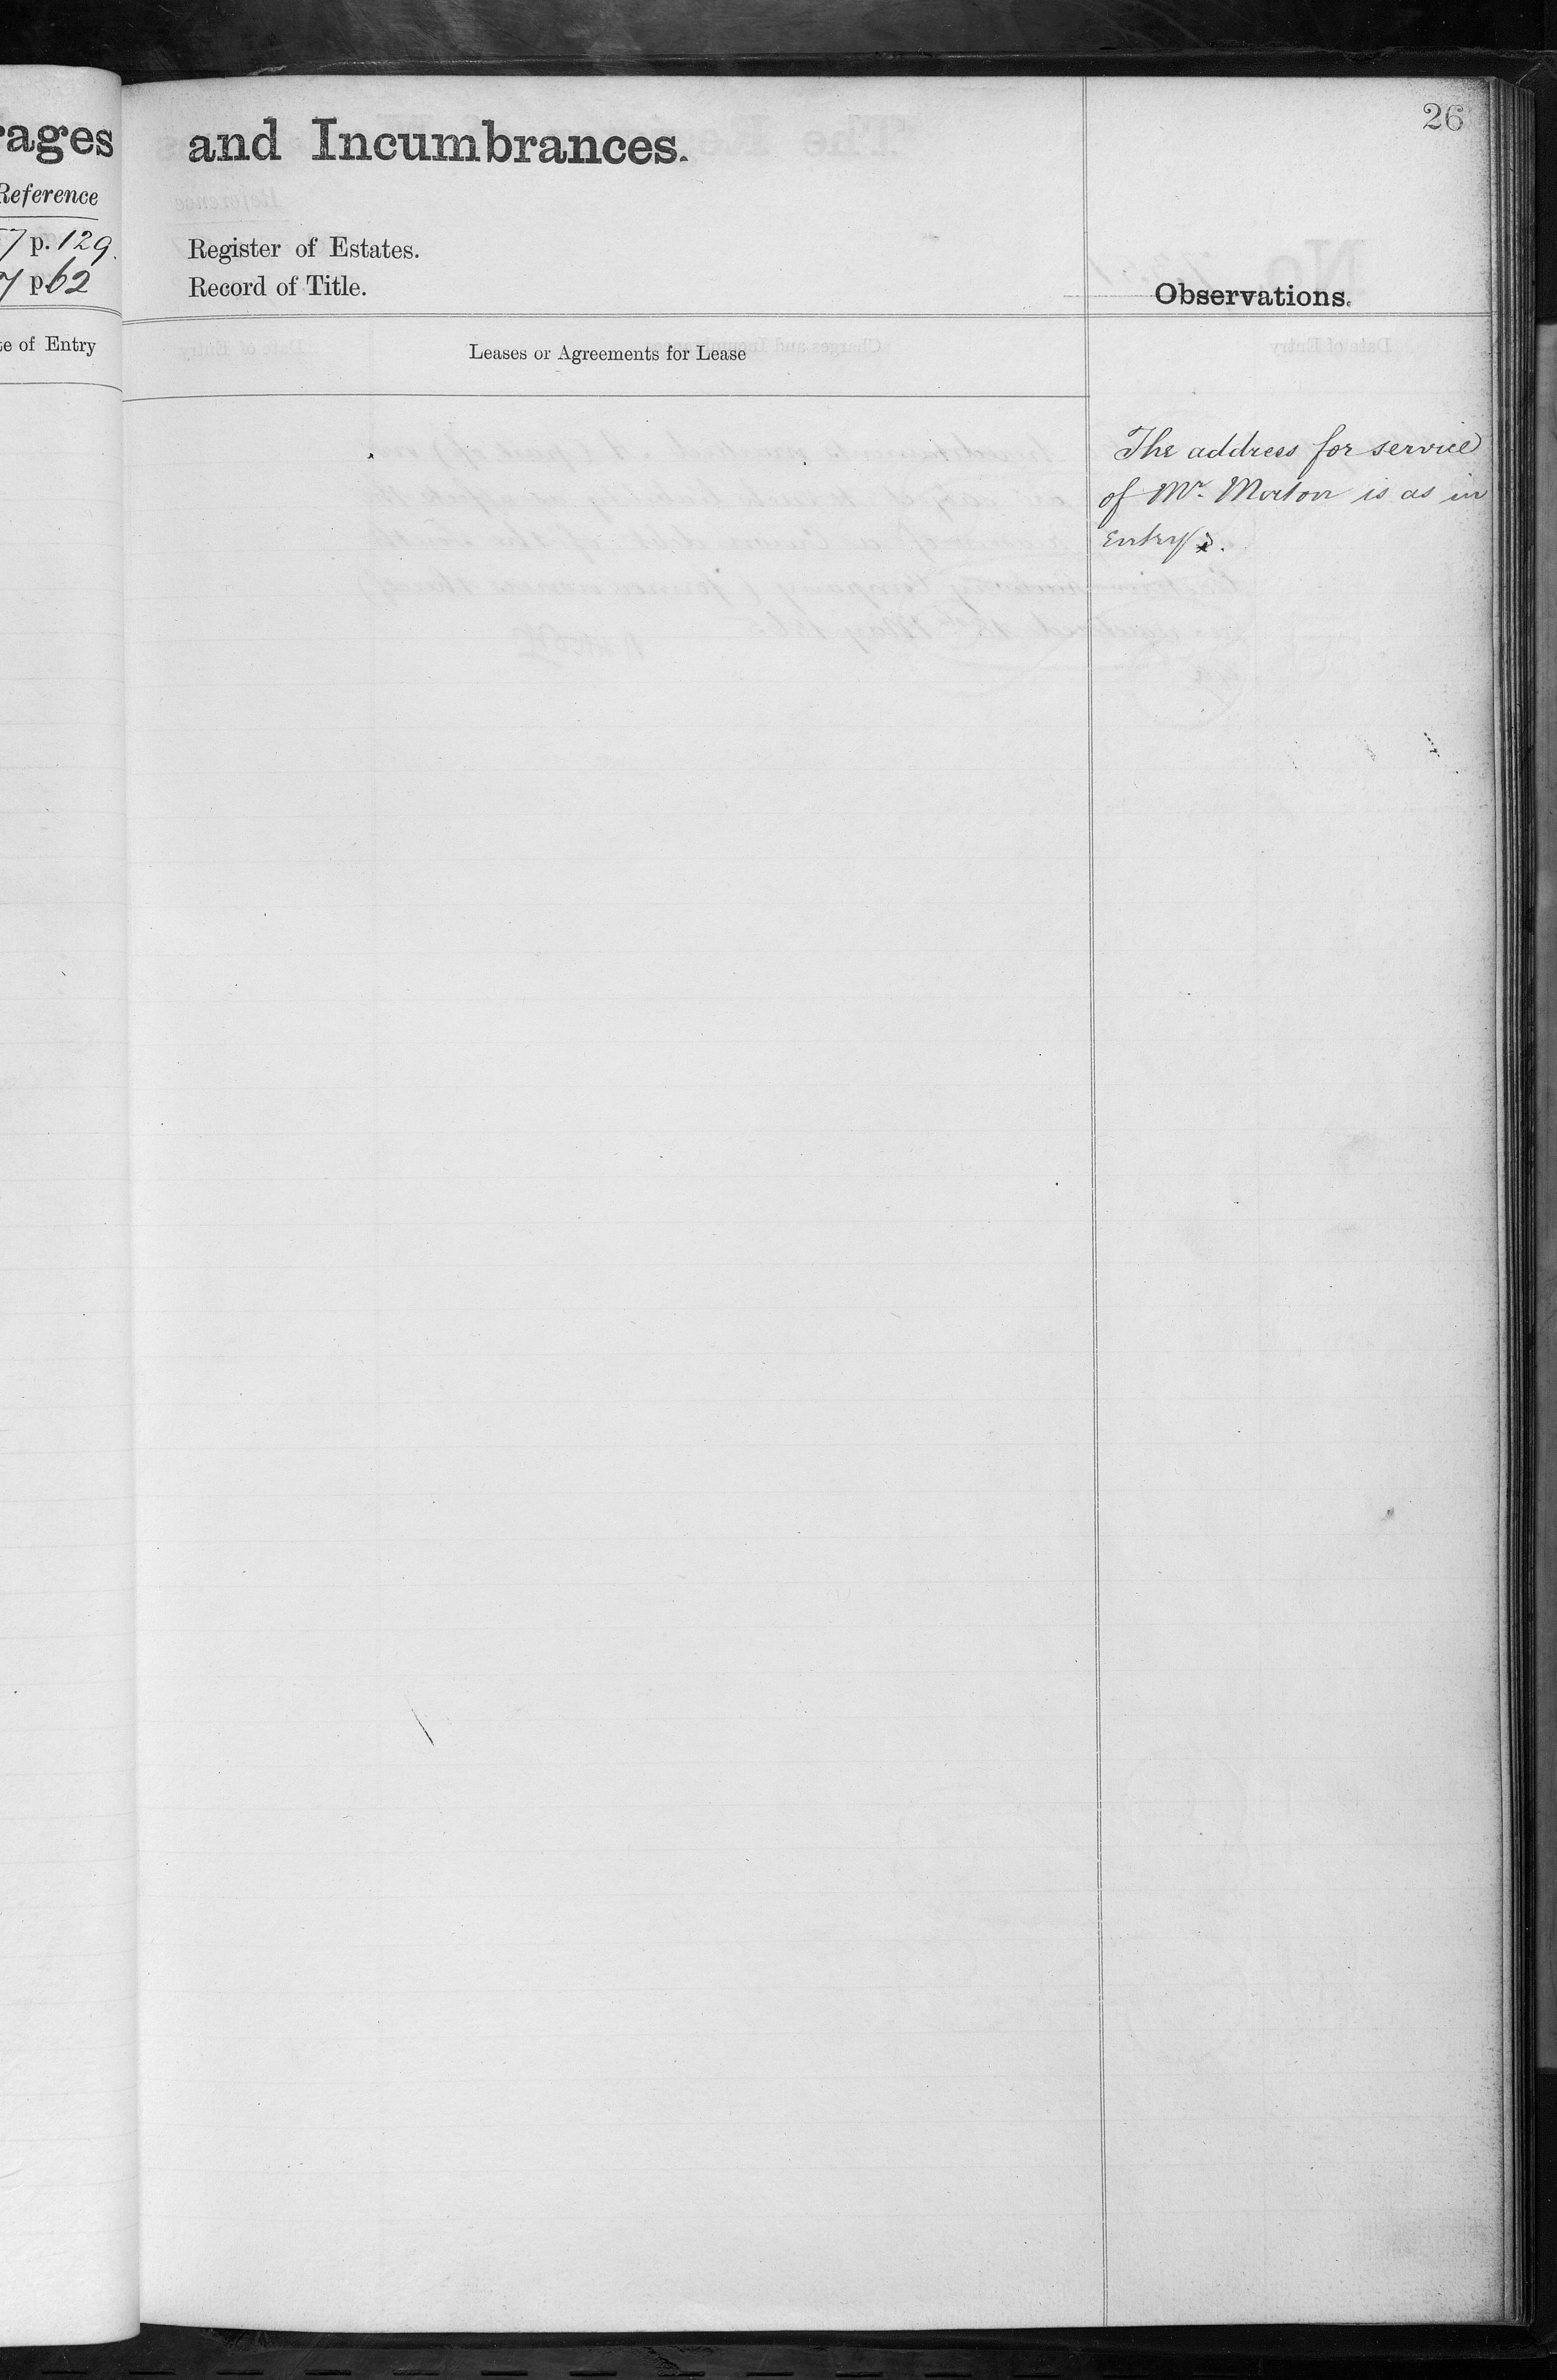 rages
Reference
7 p. 129.
7 p 62
te of Entry
26
and Incumbrances.
Register of Estates.
Record of Title.
Observations.
Leases or Agreements for Lease
The address for service
of Mr. Morton is as in
Entry